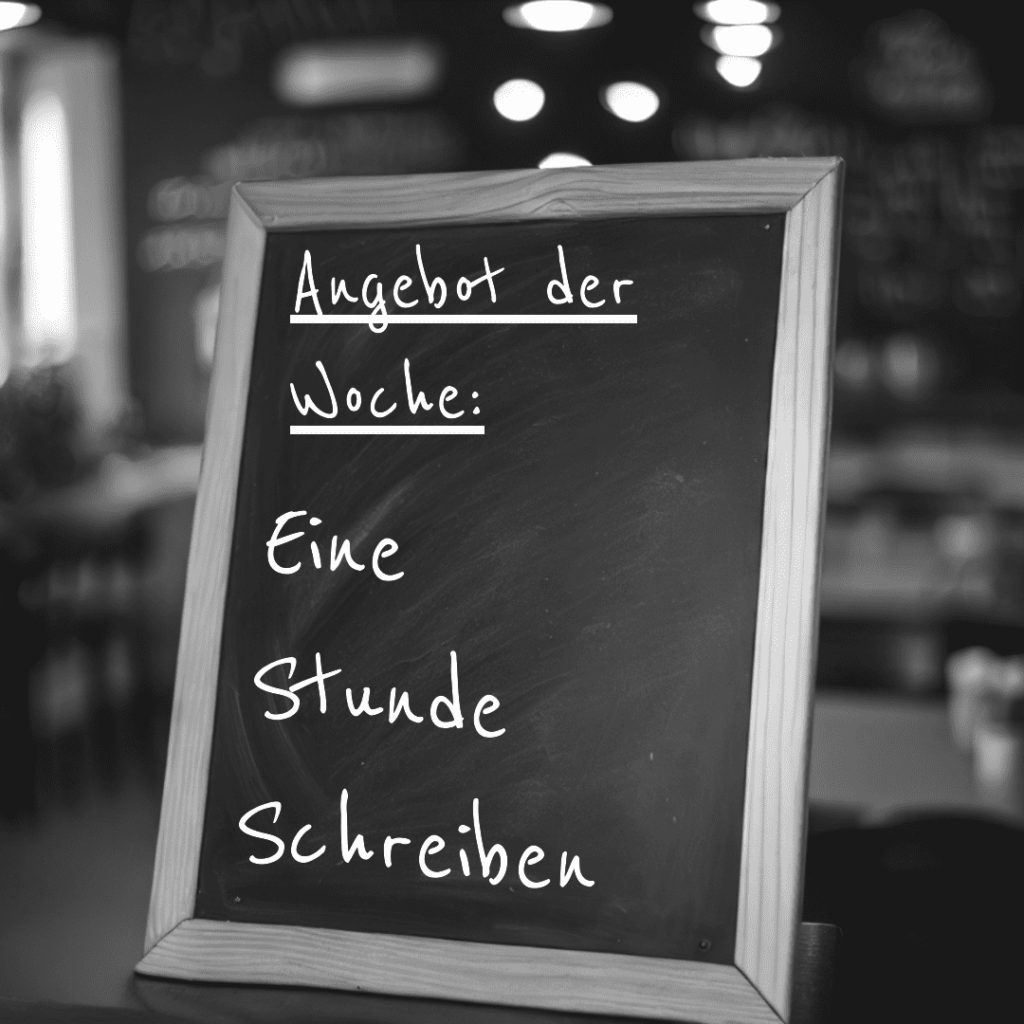 Angebot der
Woche:
Eine
Stunde
Schreiben